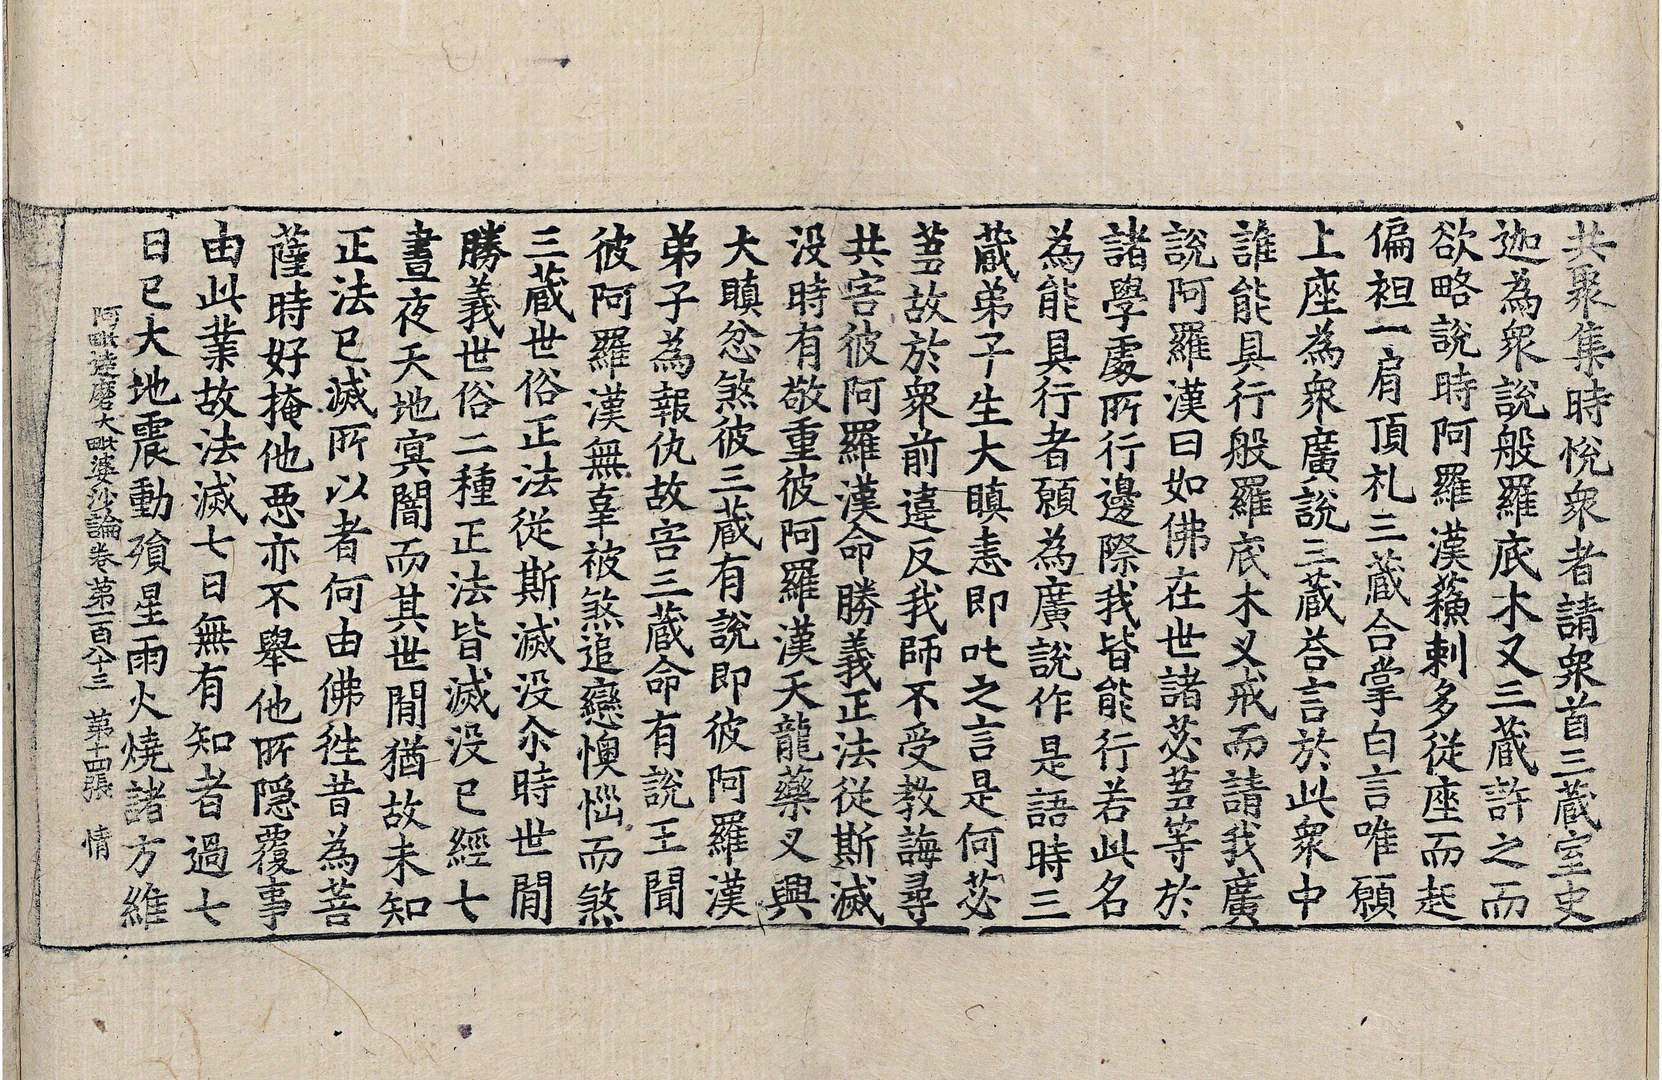 共聚集時悅衆者請衆首三藏室史
迦為衆說般羅底木叉三藏許之而
欲略說時阿羅漢蘓剌多從座而起
偏袒一肩頂礼三藏合掌白言唯願
上座為衆廣說三藏荅言於此衆中
誰能具行般羅底木叉戒而請我廣
說阿羅漢曰如佛在世諸苾芻等於
諸學處所行邊際我皆能行若此名
為能具行者願為廣說作是語時三
藏弟子生大瞋恚即叱之言是何苾
芻故於衆前違反我師不受教誨尋
共害彼阿羅漢命勝義正法從斯滅
没時有敬重彼阿羅漢天龍藥叉興
大瞋忿煞彼三藏有說即彼阿羅漢
弟子為報仇故害三藏命有說王聞
彼阿羅漢無辜被煞追戀懊惱而煞
三藏世俗正法從斯滅没尒時世間
勝義世俗二種正法皆滅没已經七
晝夜天地㝠闇而其世間猶故未知
正法已滅所以者何由佛徃昔為菩
薩時好掩他惡亦不舉他所隱覆事
由此業故法滅七日無有知者過七
日已大地震動殞星雨火燒諸方維
阿毗達磨大毗婆沙論卷第一百八十三 第十四張 情